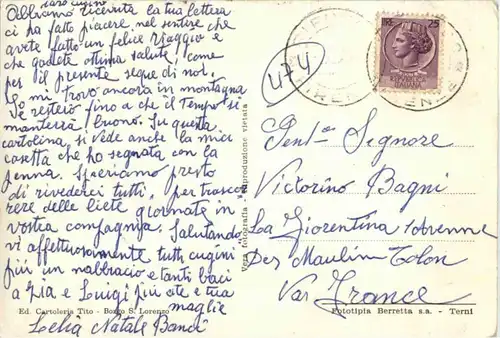 caro cugino
Abbiamo ricevuta la tua lettera
ci ha fatto piacere nel sentire che
avete fatto un felice viaggio e
che godete ottima salute, come
per il presente segue di noi.
Io mi trovo ancora in montagna
e resterò fino a che il tempo si
manterrà buono. Su questa
cartolina si vede anche la mia
casetta che ho segnata con la
penna. Speriamo presto
di rivederci tutti, per trascor
rere delle liete giornate in
vostra compagnia. Salutando
vi affettuosamente tutti cugini
più un abbraccio e tanti baci
a zia e Luigi più a te e tua
moglie
Lelia Natale Banci
474
Gent. Signore
Victorino Bagni
La Fiorentina
Des Maulin Tolon
Var France
Vera fotografia - Riproduzione vietata
Ed. Cartoleria Tito - Borgo S. Lorenzo
Fototipia Berretta s.a. - Terni
ITALIANA